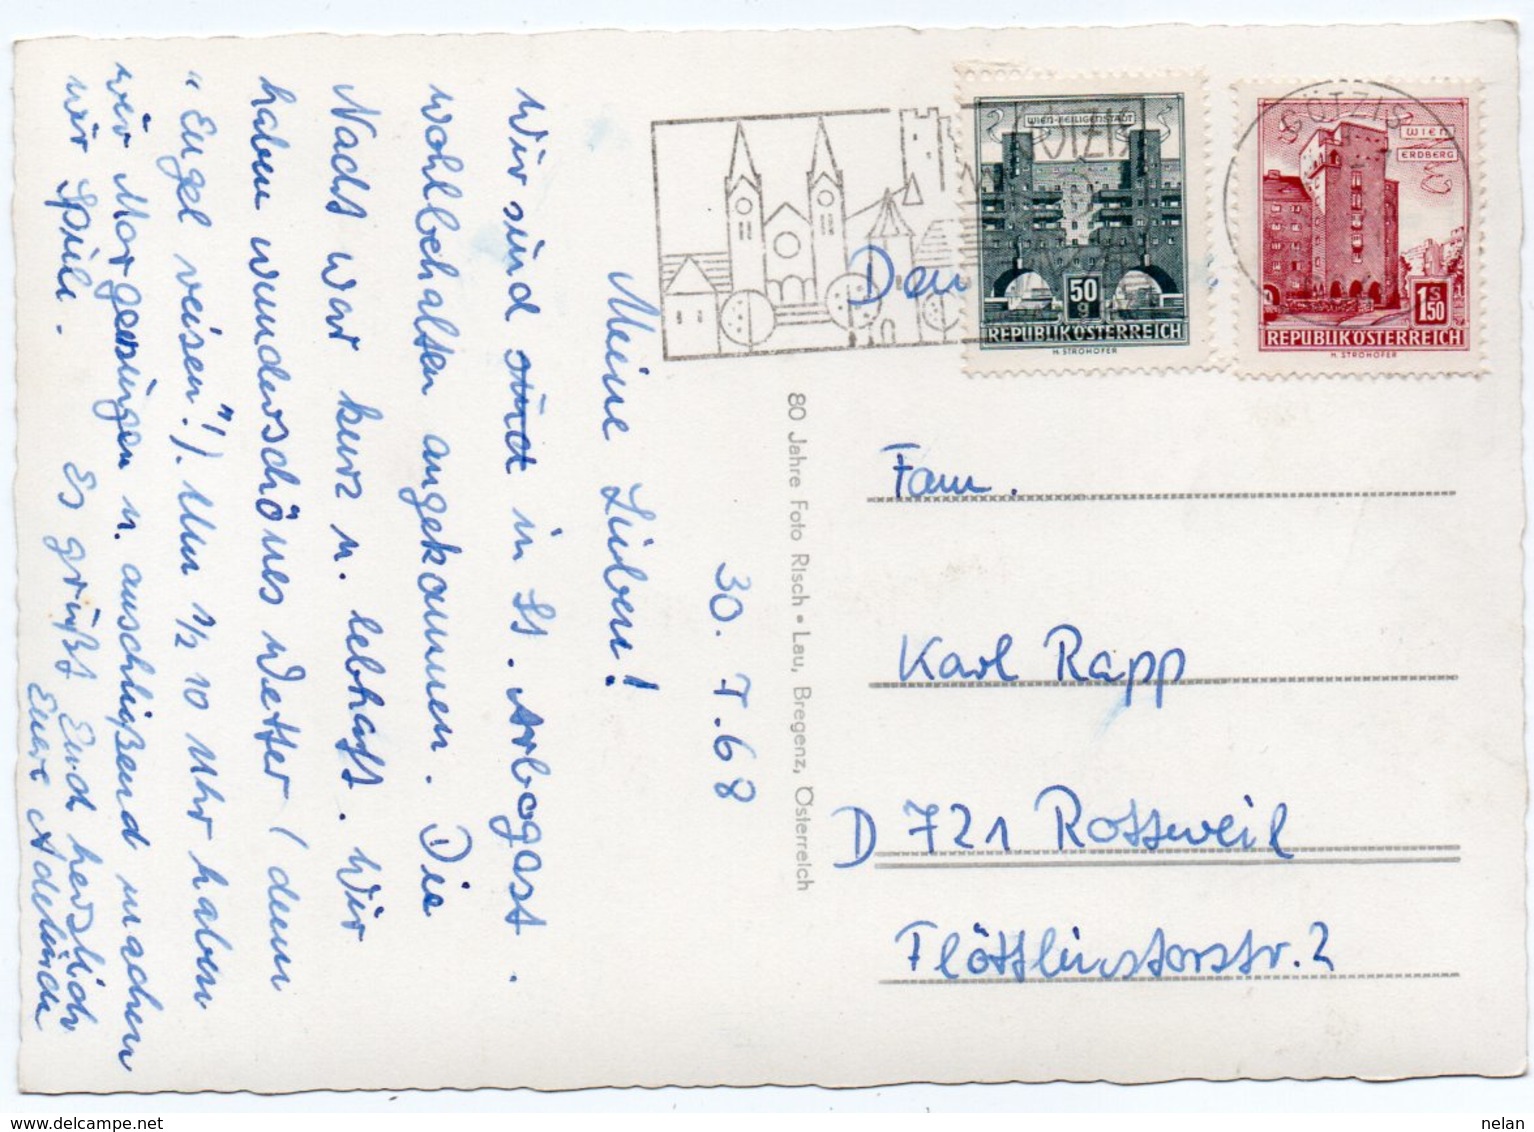 Den
30. 7. 68
Meine Lieben!
Wir sind in St. Arbogast
wohlbehalten angekommen. Die
Nacht war kurz u. lebhaft. Wir
haben wunderschönes Wetter (denn
"Engel reisen"!). Um 1/2 10 Uhr haben
wir Morgensingen u. anschließend machen
wir Spiele.
Es grüßt Euch herzlich
Eure
80 Jahre Foto Risch • Lau, Bregenz, Österreich
WIEN-HEILIGENSTADT
50
g
REPUBLIK ÖSTERREICH
H. STROHOFER
GÖTZIS
WIEN
ERDBERG
1 S 50
REPUBLIK ÖSTERREICH
H. STROHOFER
Fam.
Karl Rapp
D 721 Rottweil
www.delcampe.net
nelan